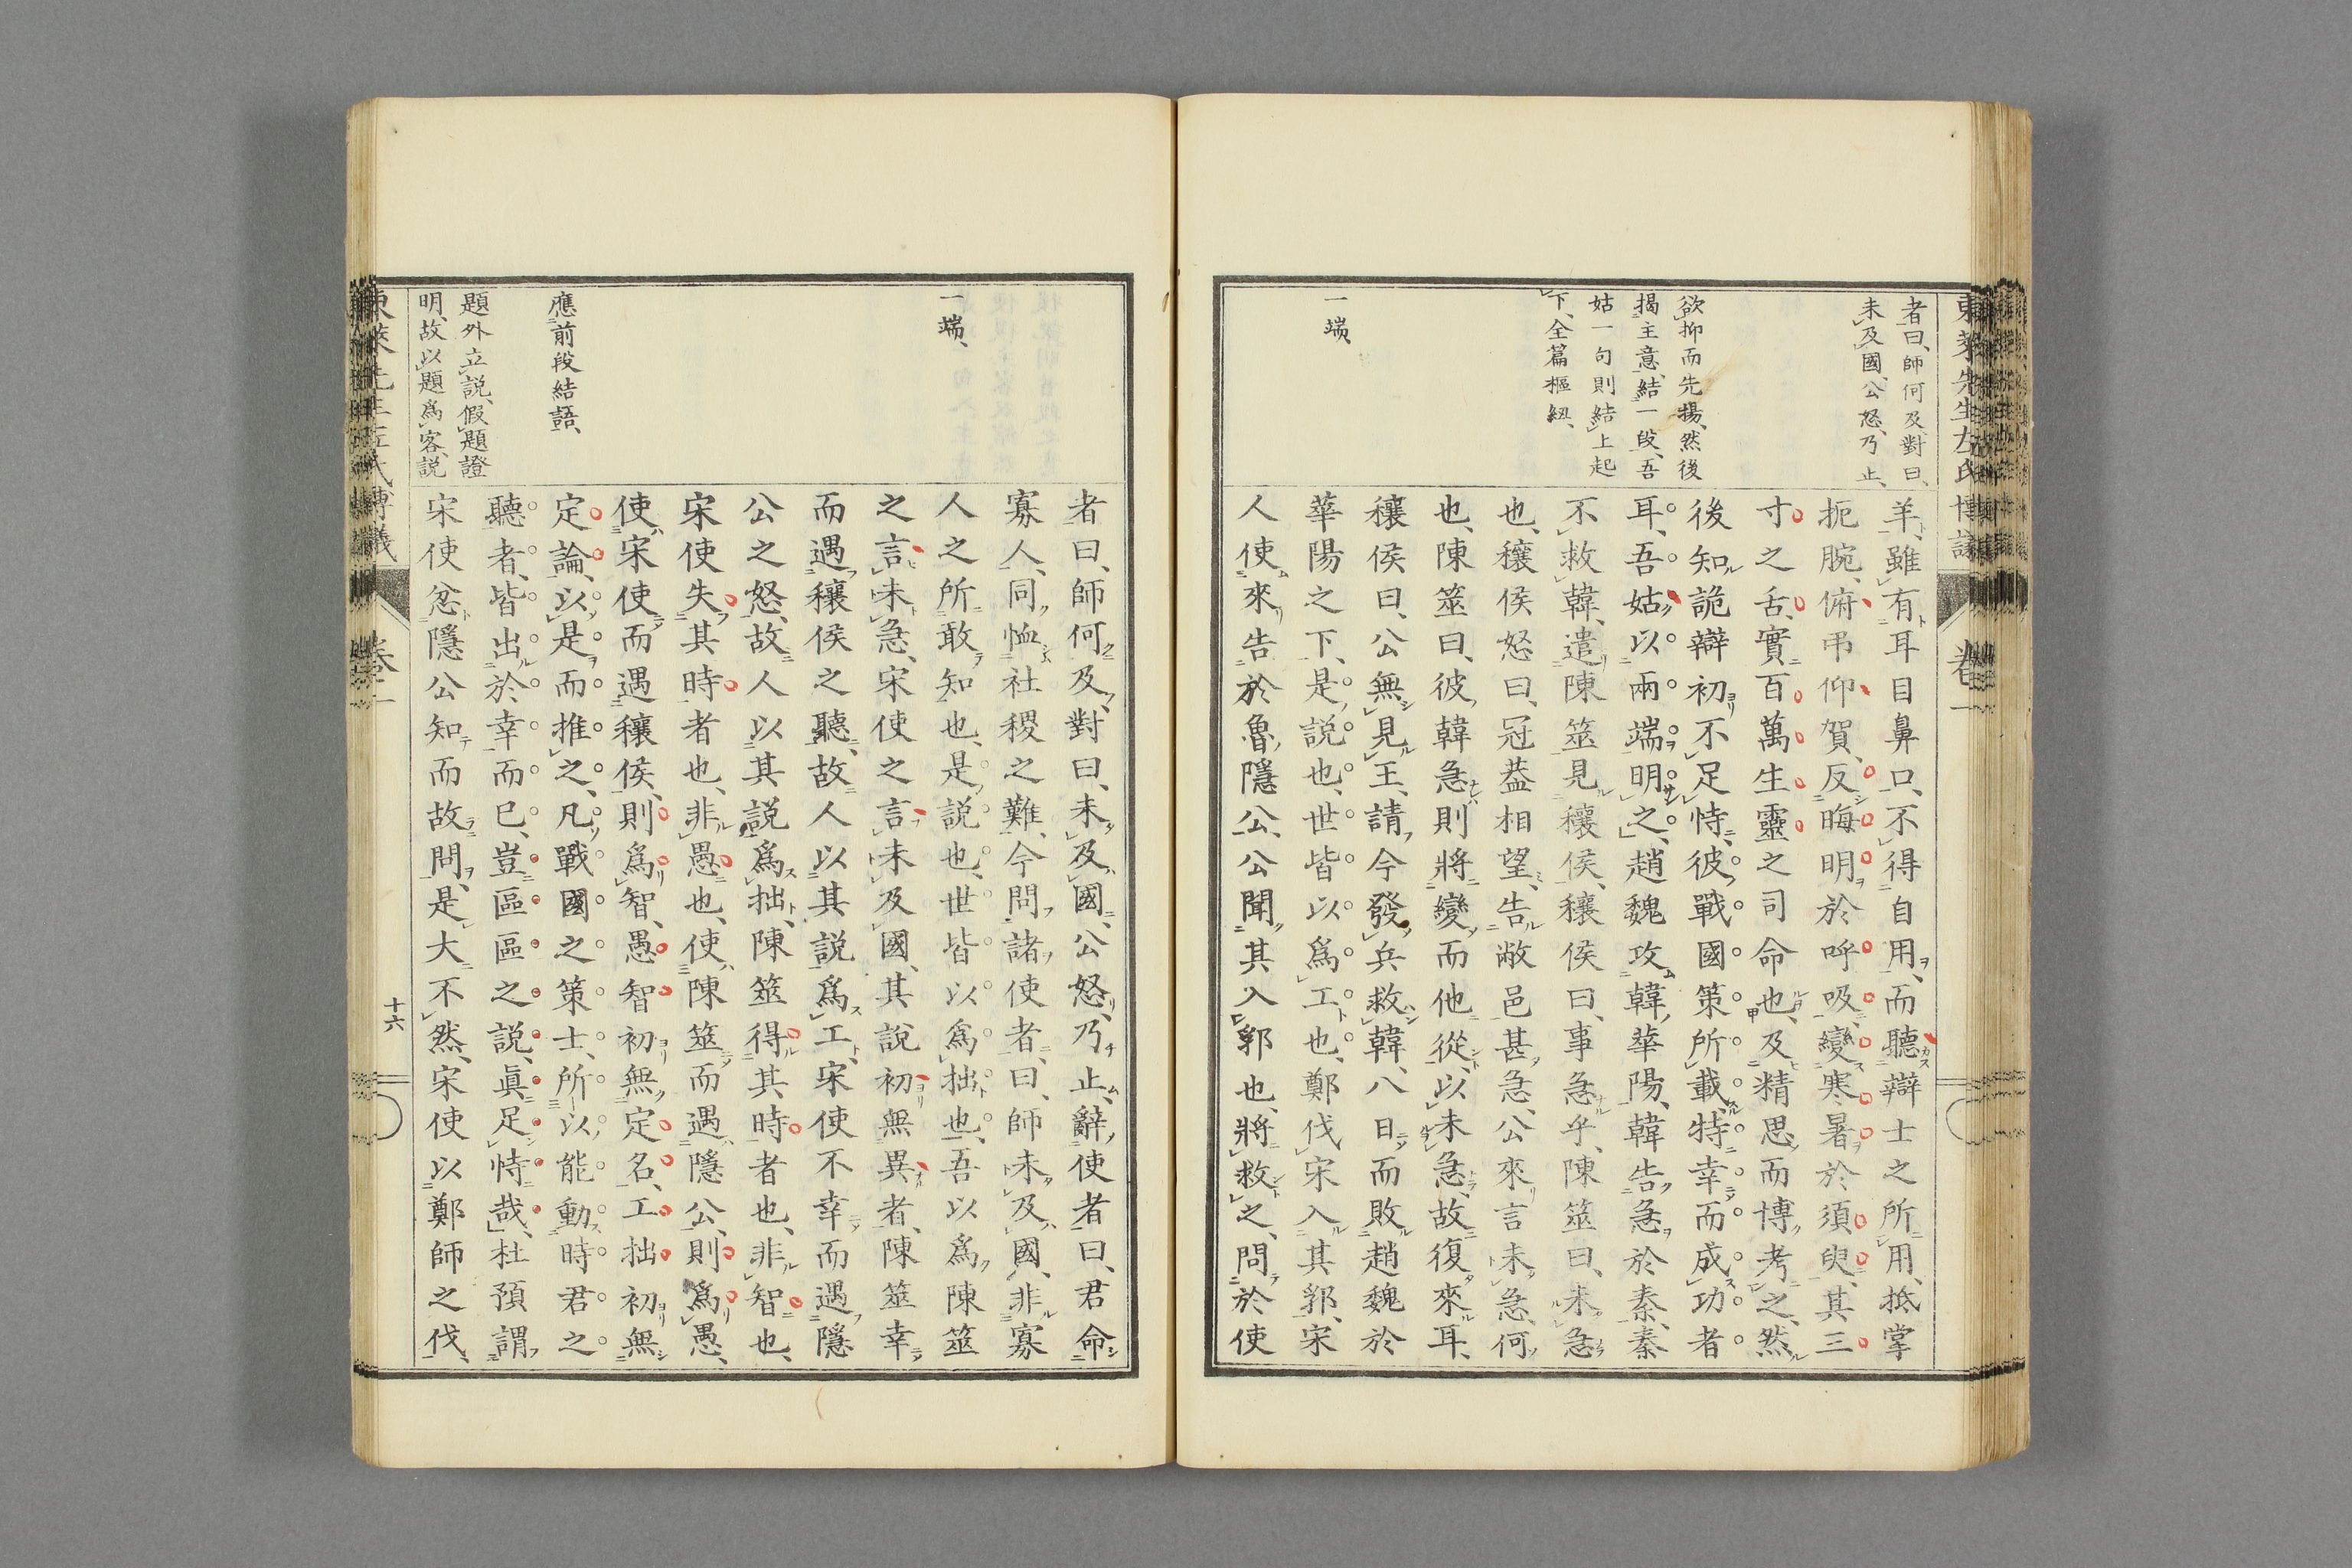 東萊先生左氏博議
卷一
者曰、師何及、對曰、
未及國、公怒、乃止、
欲抑而先揚、然後
揭主意、結一段、吾
姑一句則結上起
下、全篇樞紐、
一端、
羊、雖有耳目鼻口、不得自用、而聽辯士之所用、抵掌
扼腕、俯弔仰賀、反晦明於呼吸、變寒暑於須臾、其三
寸之舌、實百萬生靈之司命也、及精思而博考之、然
後知詭辯初不足恃、彼戰國策所載、特幸而成功者
耳、吾姑以兩端明之、趙魏攻韓華陽、韓告急於秦、秦
不救韓、遣陳筮見穰侯、穰侯曰、事急乎、陳筮曰、未急
也、穰侯怒曰、冠葢相望、告敝邑甚急、公來言未急、何
也、陳筮曰、彼韓急則將變而他從、以未急、故復來耳、
穰侯曰、公無見王、請今發兵救韓、八日而敗趙魏於
華陽之下、是說也、世皆以爲工也、鄭伐宋入其郛、宋
人使來告於魯隱公、公聞其入郛也、將救之、問於使
一端、
應前段結語、
題外立說、假題證
明、故以題爲客、說
者曰、師何及、對曰、未及國、公怒、乃止、辭使者曰、君命
寡人、同恤社稷之難、今問諸使者、曰、師未及國、非寡
人之所敢知也、是說也、世皆以爲拙也、吾以爲陳筮
之言未急、宋使之言未及國、其說初無異者、陳筮幸
而遇穰侯之聽、故人以其說爲工、宋使不幸而遇隱
公之怒、故人以其說爲拙、陳筮得其時者也、非智也、
宋使失其時者也、非愚也、使陳筮而遇隱公、則爲愚、
使宋使而遇穰侯、則爲智、愚智初無定名、工拙初無
定論、以是而推之、凡戰國之策士、所以能動時君之
聽者、皆出於幸而已、豈區區之說、眞足恃哉、杜預謂
宋使忿隱公知而故問、是大不然、宋使以鄭師之伐
東萊先生左氏博議
卷一
十六